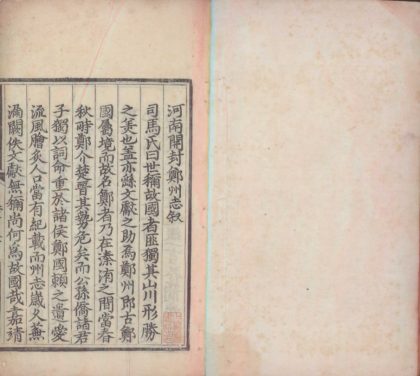 河南開封鄭州志叙
司馬氏曰世稱故國者匪獨其山川形勝
之美也蓋亦繇文獻之助焉鄭州郎古鄭
國舊境而故名鄭者乃在溱洧之間當春
秋時鄭介楚晉其勢危矣而公孫僑諸君
子獨以詞命重於諸侯鄭國賴之遺愛
流風膾炙人口當有紀載而州志歲久蕪
漏闕佚文獻無稱尚何爲故國哉嘉靖